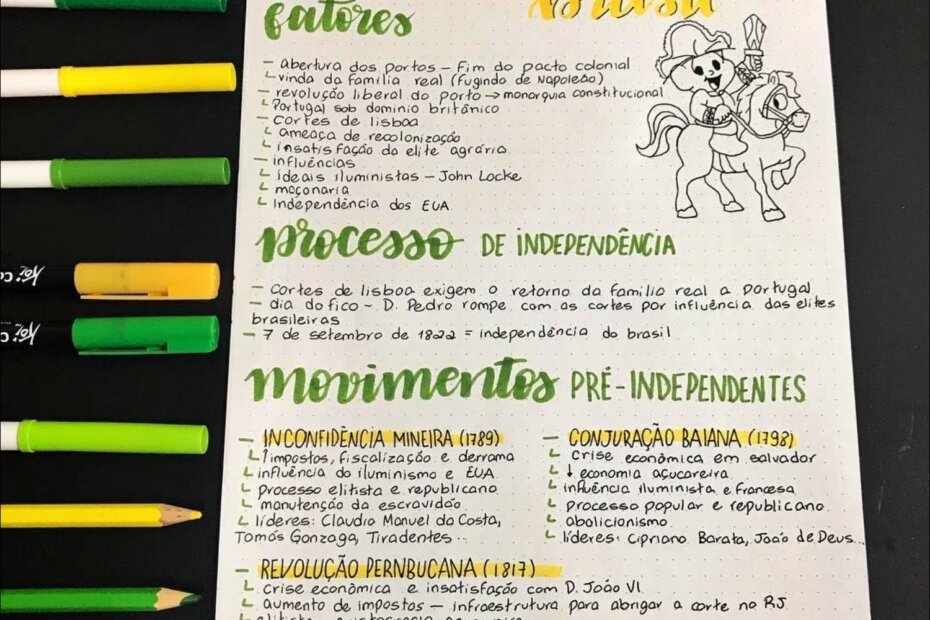 Brasil
fatores
– abertura dos portos – Fim do pacto colonial
└ vinda da família real (fugindo de Napoleão)
– revolução liberal do porto → monarquia constitucional
└ Portugal sob domínio britânico
– Cortes de lisboa
└ ameaça de recolonização
└ insatisfação da elite agrária
– influências
└ Ideais iluministas – John Locke
└ maçonaria
└ Independência dos EUA
processo DE INDEPENDÊNCIA
– Cortes de lisboa exigem o retorno da família real a Portugal
– dia do fico – D. Pedro rompe com as cortes por influência das elites
brasileiras
– 7 de setembro de 1822 = independência do brasil
movimentos PRÉ-INDEPENDENTES
– INCONFIDÊNCIA MINEIRA (1789)
└ ↑ impostos, fiscalização e derrama
└ influência do iluminismo e EUA
└ processo elitista e republicano
└ manutenção da escravidão
└ líderes: Claudio Manuel da Costa,
Tomás Gonzaga, Tiradentes...
– CONJURAÇÃO BAIANA (1798)
└ crise econômica em salvador
└ ↓ economia açucareira
└ influência iluminista e Francesa
└ processo popular e republicano
└ abolicionismo
└ líderes: Cipriano Barata, João de Deus...
– REVOLUÇÃO PERNBUCANA (1817)
└ crise econômica e insatisfação com D. João VI
└ aumento de impostos – infraestrutura para abrigar a corte no RJ